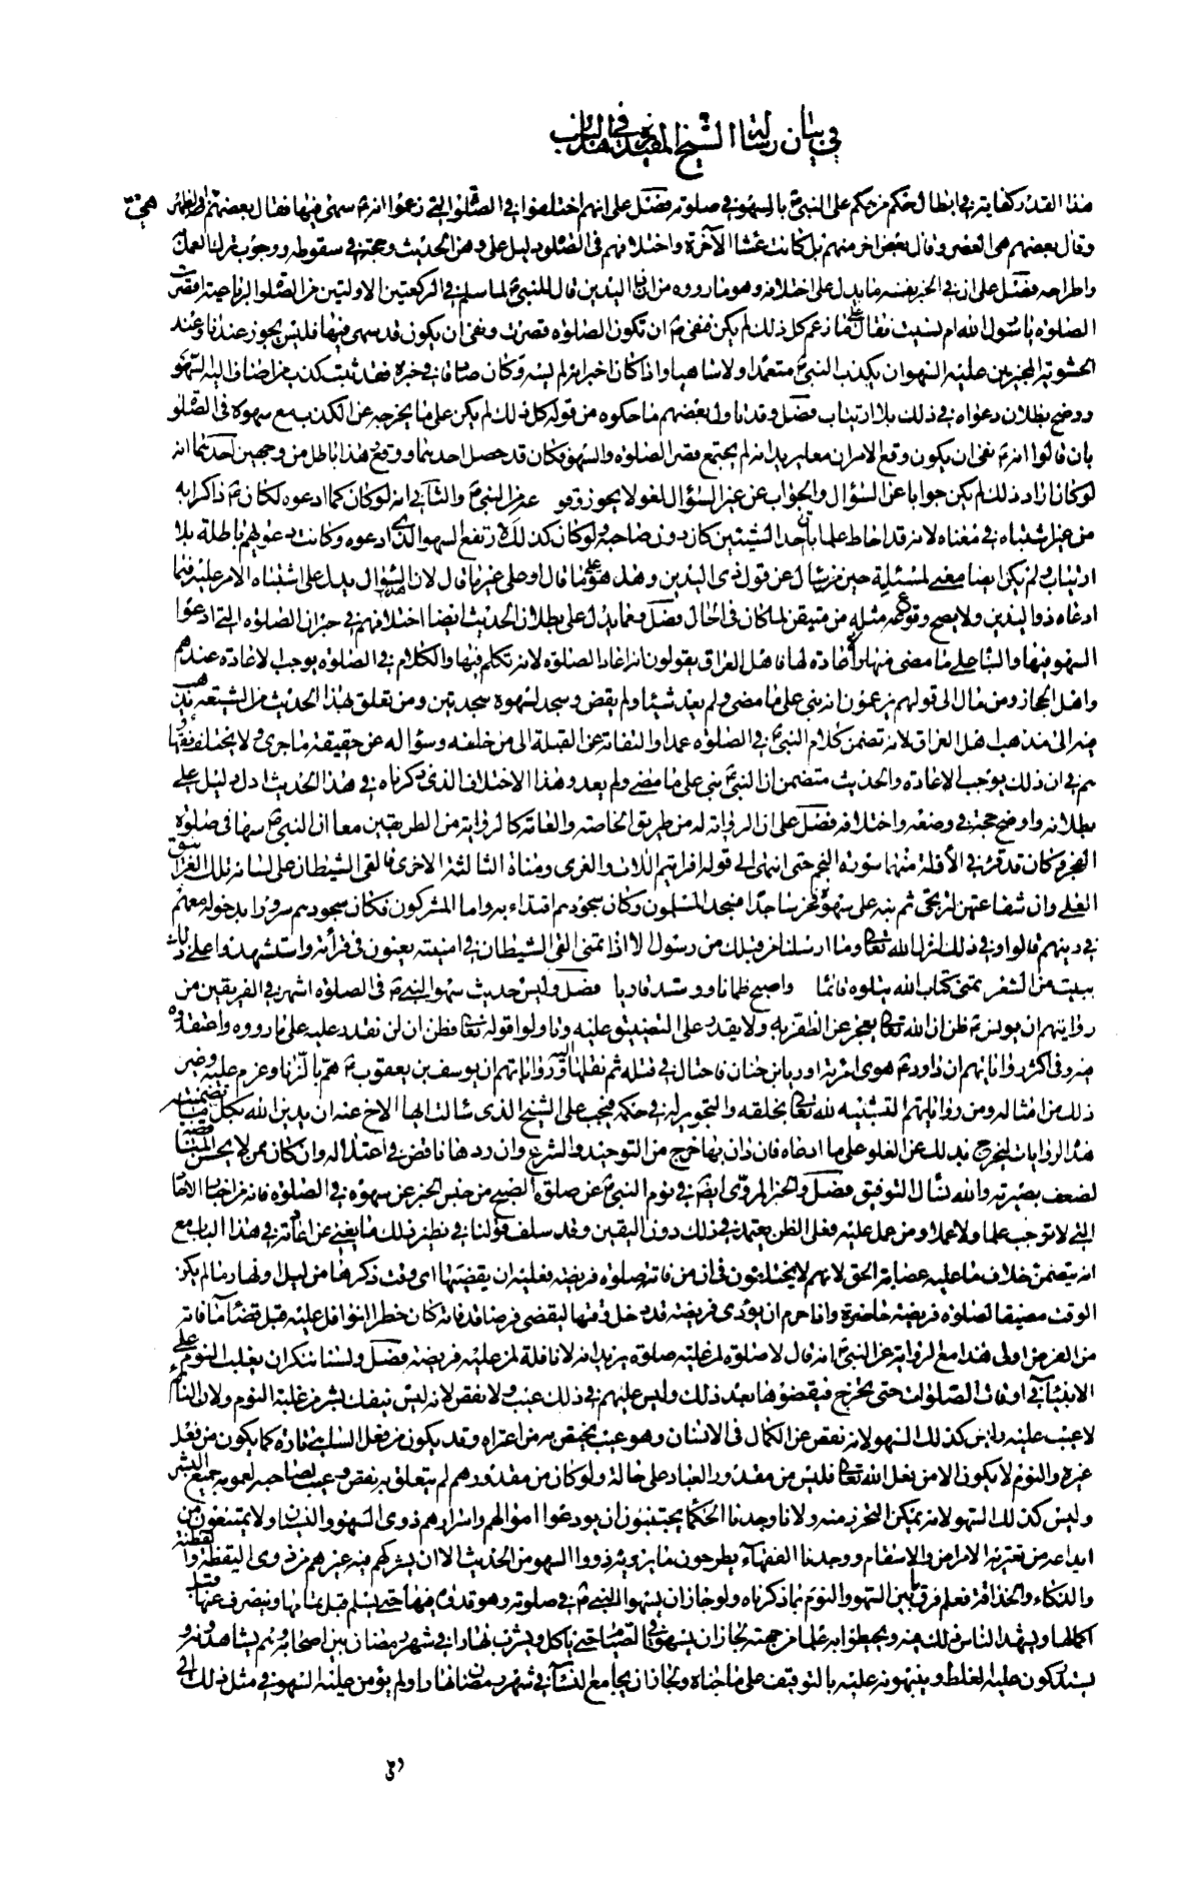 في بيان رسالة الشيخ المفيد في هذا الباب
هذا القدر كفاية في ابطال حكم من حكم على النبي ص بالسهو في صلوته فصل على انهم اختلفوا في الصلوة التي زعموا انه ص سهى فيها فقال بعضهم هي الظهر
وقال بعضهم هي العصر وقال بعض اخر منهم بل كانت عشا الآخرة واختلافهم في الصلوة دليل على وهن الحديث وحجة في سقوطه ووجوب ترك العمل
واطراحه فصل على ان في الخبر نفسه ما يدل على اختلاقه وهو ما رووه من ان ذا اليدين قال للنبي ص لما سلم في الركعتين الاولتين من الصلوة الرباعية اقصرت
الصلوة يا رسول الله ام نسيت فقال ص على ما زعم كل ذلك لم يكن فنفى ص ان تكون الصلوة قصرت ونفى ان يكون قد سهى فيها فليس يجوز عندنا وعند
الحشوية المجيزين عليه السهو ان يكذب النبي ص متعمدا ولا ساهيا واذا كان اخبر انه لم يسه وكان صادقا في خبره فقد ثبت كذب من اضاف اليه السهو
ووضح بطلان دعواه في ذلك بلا ارتياب فصل وقد تاول بعضهم ما حكوه من قوله كل ذلك لم يكن على ما يخرجه عن الكذب مع سهوه في الصلوة
بان قالوا انه ص نفى ان يكون وقع الامران معا يريد انه لم يجتمع قصر الصلوة والسهو فكان قد حصل احدهما ووقع وهذا باطل من وجهين احدهما انه
لو كان اراد ذلك لم يكن جوابا عن السؤال والجواب عن غير السؤال لغو لا يجوز وقوعه من النبي ص والثاني انه لو كان كما ادعوه لكان ص ذاكرا به
من غير اشتباه في معناه لانه قد احاط علما بان احد الشيئين كان دون صاحبه ولو كان كذلك لارتفع السهو الذي ادعوه وكانت دعواهم باطلة بلا
ارتياب ولم يكن ايضا معنى لمسئلته حين سئل عن قول ذي اليدين وهل هو على ما قال او على غير ما قال لان السؤال يدل على اشتباه الامر عليه فيما
ادعاه ذو اليدين ولا يصح وقوع مثله من متيقن لما كان في الحال فصل ومما يدل على بطلان الحديث ايضا اختلافهم في جبران الصلوة التي ادعوا
السهو فيها والبناء على ما مضى منها او الاعادة لها فاهل العراق يقولون انه اعاد الصلوة لانه تكلم فيها والكلام في الصلوة يوجب الاعادة عندهم
واهل الحجاز ومن مال الى قولهم يزعمون انه بنى على ما مضى ولم يعد شيئا ولم يقض وسجد لسهوه سجدتين ومن تعلق بهذا الحديث من الشيعة يذهب
فيه الى مذهب اهل العراق لانه تضمن كلام النبي ص في الصلوة عمدا والتفاته عن القبلة الى من خلفه وسؤاله عن حقيقة ما جرى ولا يختلف فقهاؤ
هم في ان ذلك يوجب الاعادة والحديث متضمن ان النبي ص بنى على ما مضى ولم يعد وهذا الاختلاف الذي ذكرناه في هذا الحديث ادل دليل على
بطلانه واوضح حجة في وضعه واختلاقه فصل على ان الرواية له من طريق الخاصة والعامة كالرواية من الطريقين معا ان النبي ص سها في صلوة
الفجر وكان قد قرء في الاولة منهما سورة النجم حتى انتهى الى قوله افرايتم اللات والعزى ومناة الثالثة الاخرى فالقى الشيطان على لسانه تلك الغرانيق
العلى وان شفاعتهن لترتجى ثم نبه على سهوه فخر ساجدا فسجد المسلمون وكان سجودهم اقتداء به واما المشركون فكان سجودهم سرورا بدخوله معهم
في دينهم قالوا وفي ذلك انزل الله تعالى وما ارسلنا من قبلك من رسول الا اذا تمنى القى الشيطان في امنيته يعنون في قرأته واستشهدوا على ذلك
ببيت من الشعر تمنى كتاب الله يتلوه قائما واصبح ظمانا ومسد قاريا فصل وليس حديث سهو النبي ص في الصلوة اشهر في الفريقين من
روايتهم ان يونس ع ظن ان الله تعالى يعجز عن الظفر به ولا يقدر على التضييق عليه وتاولوا قوله تعالى فظن ان لن نقدر عليه على ما رووه واعتقدوه
فيه وفي اكثر رواياتهم ان داود ع هوى امرءة اوريا بن حنان فاحتال في قتله ثم نقلها اليه ورواياتهم ان يوسف بن يعقوب ع هم بالزنا وعزم عليه وغير
ذلك من امثاله ومن رواياتهم التشبيه لله تعالى بخلقه والتجوير له في حكمه فيجب على الشيخ الذي سالت ايها الاخ عنه ان يدين الله بكل ما تضمنته
هذه الروايات ليخرج بذلك عن الغلو على ما ادعاه فان دان بها خرج من التوحيد والشرع وان ردها ناقض في اعتلاله وان كان ممن لا يحسن المناقضة
لضعف بصيرته والله نسأل التوفيق فصل والخبر المروي ايضا في نوم النبي ص عن صلوة الصبح من جنس الخبر عن سهوه في الصلوة فانه من اخبار الاحاد
التي لا توجب علما ولا عملا ومن عمل عليه فعلى الظن يعتمد في ذلك دون اليقين وقد سلف قولنا في نظير ذلك ما يغني عن اعادته في هذا الباب مع
انه يتضمن خلاف ما عليه عصابة الحق لانهم لا يختلفون في ان من فاتته صلوة فريضة فعليه ان يقضيها اى وقت ذكرها من ليل او نهار ما لم يكن
الوقت مضيقا لصلوة فريضة حاضرة واذا حرم ان يؤدى فريضة قد دخل وقتها ليقضى فرضا قد فاته كان حظر النوافل عليه قبل قضاء ما فاته
من الفرض اولى هذا مع الرواية عن النبي ص انه قال لا صلوة لمن عليه صلوة يريد انه لا نافلة لمن عليه فريضة فصل ولسنا ننكر ان يغلب النوم على
الانبياء في اوقات الصلوات حتى يخرج فيقضوها بعد ذلك وليس عليهم في ذلك عيب ولا نقص لانه ليس ينفك بشر من غلبة النوم ولان النائم
لا عيب عليه وليس كذلك السهو لانه نقص عن الكمال في الانسان وهو عيب يختص به من اعتراه وقد يكون من فعل الساهي تارة كما يكون من فعل
غيره والنوم لا يكون الا من فعل الله تعالى فليس من مقدور العباد على حال ولو كان من مقدورهم لم يتعلق به نقص وعيب لصاحبه لعمومه جميع البشر
وليس كذلك السهو لانه يمكن التحرز منه ولانا وجدنا الحكما يجتنبون ان يودعوا اموالهم واسرارهم ذوي السهو والنسيان ولا يمتنعون من
ايداعه من تعتريه الامراض والاسقام ووجدنا الفقهاء يطرحون ما يرويه ذووا السهو من الحديث الا ان يشركهم فيه غيرهم من ذوي اليقظة والفطنة
والذكاء والحذاقة فعلم فرق ما بين السهو والنوم بما ذكرناه ولو جاز ان يسهو النبي ص في صلوته وهو قدوة فيها حتى يسلم قبل تمامها وينصرف عنها قبل
اكمالها ويشهد الناس ذلك فيه ويحيطوا به علما من جهته لجاز ان يسهو في الصيام حتى ياكل ويشرب نهارا في شهر رمضان بين اصحابه وهم يشاهدونه و
يستدركون عليه الغلط وينبهونه عليه بالتوقيف على ما جناه ولجاز ان يجامع النساء في شهر رمضان نهارا ولم يؤمن عليه السهو في مثل ذلك الى